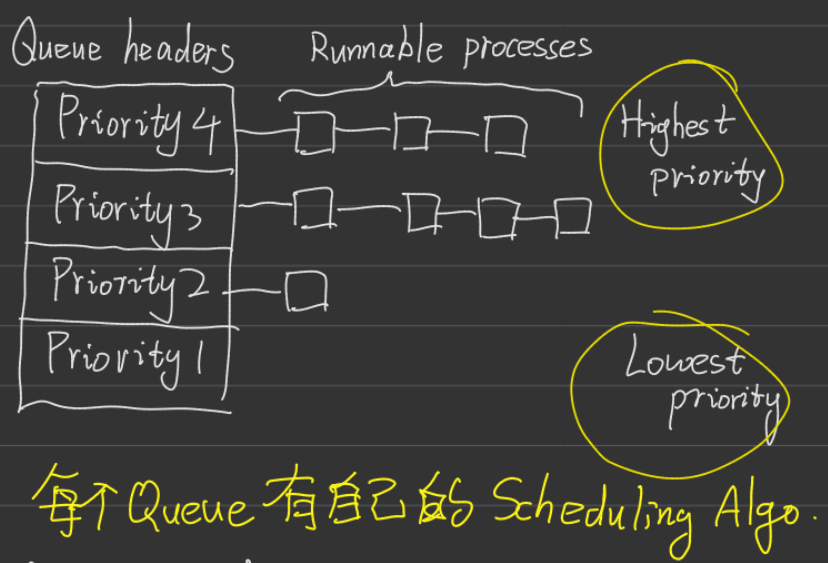 Queue headers
Runnable processes
Priority 4
Highest
priority
Priority 3
Priority 2
Priority 1
Lowest
priority
每个Queue有自己的Scheduling Algo.